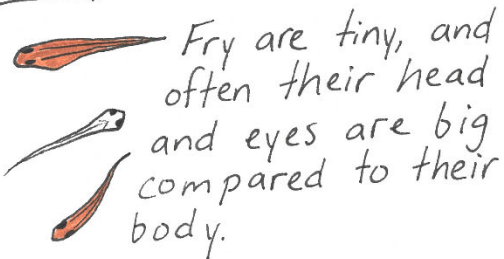 Fry are tiny, and
often their head
and eyes are big
compared to their
body.